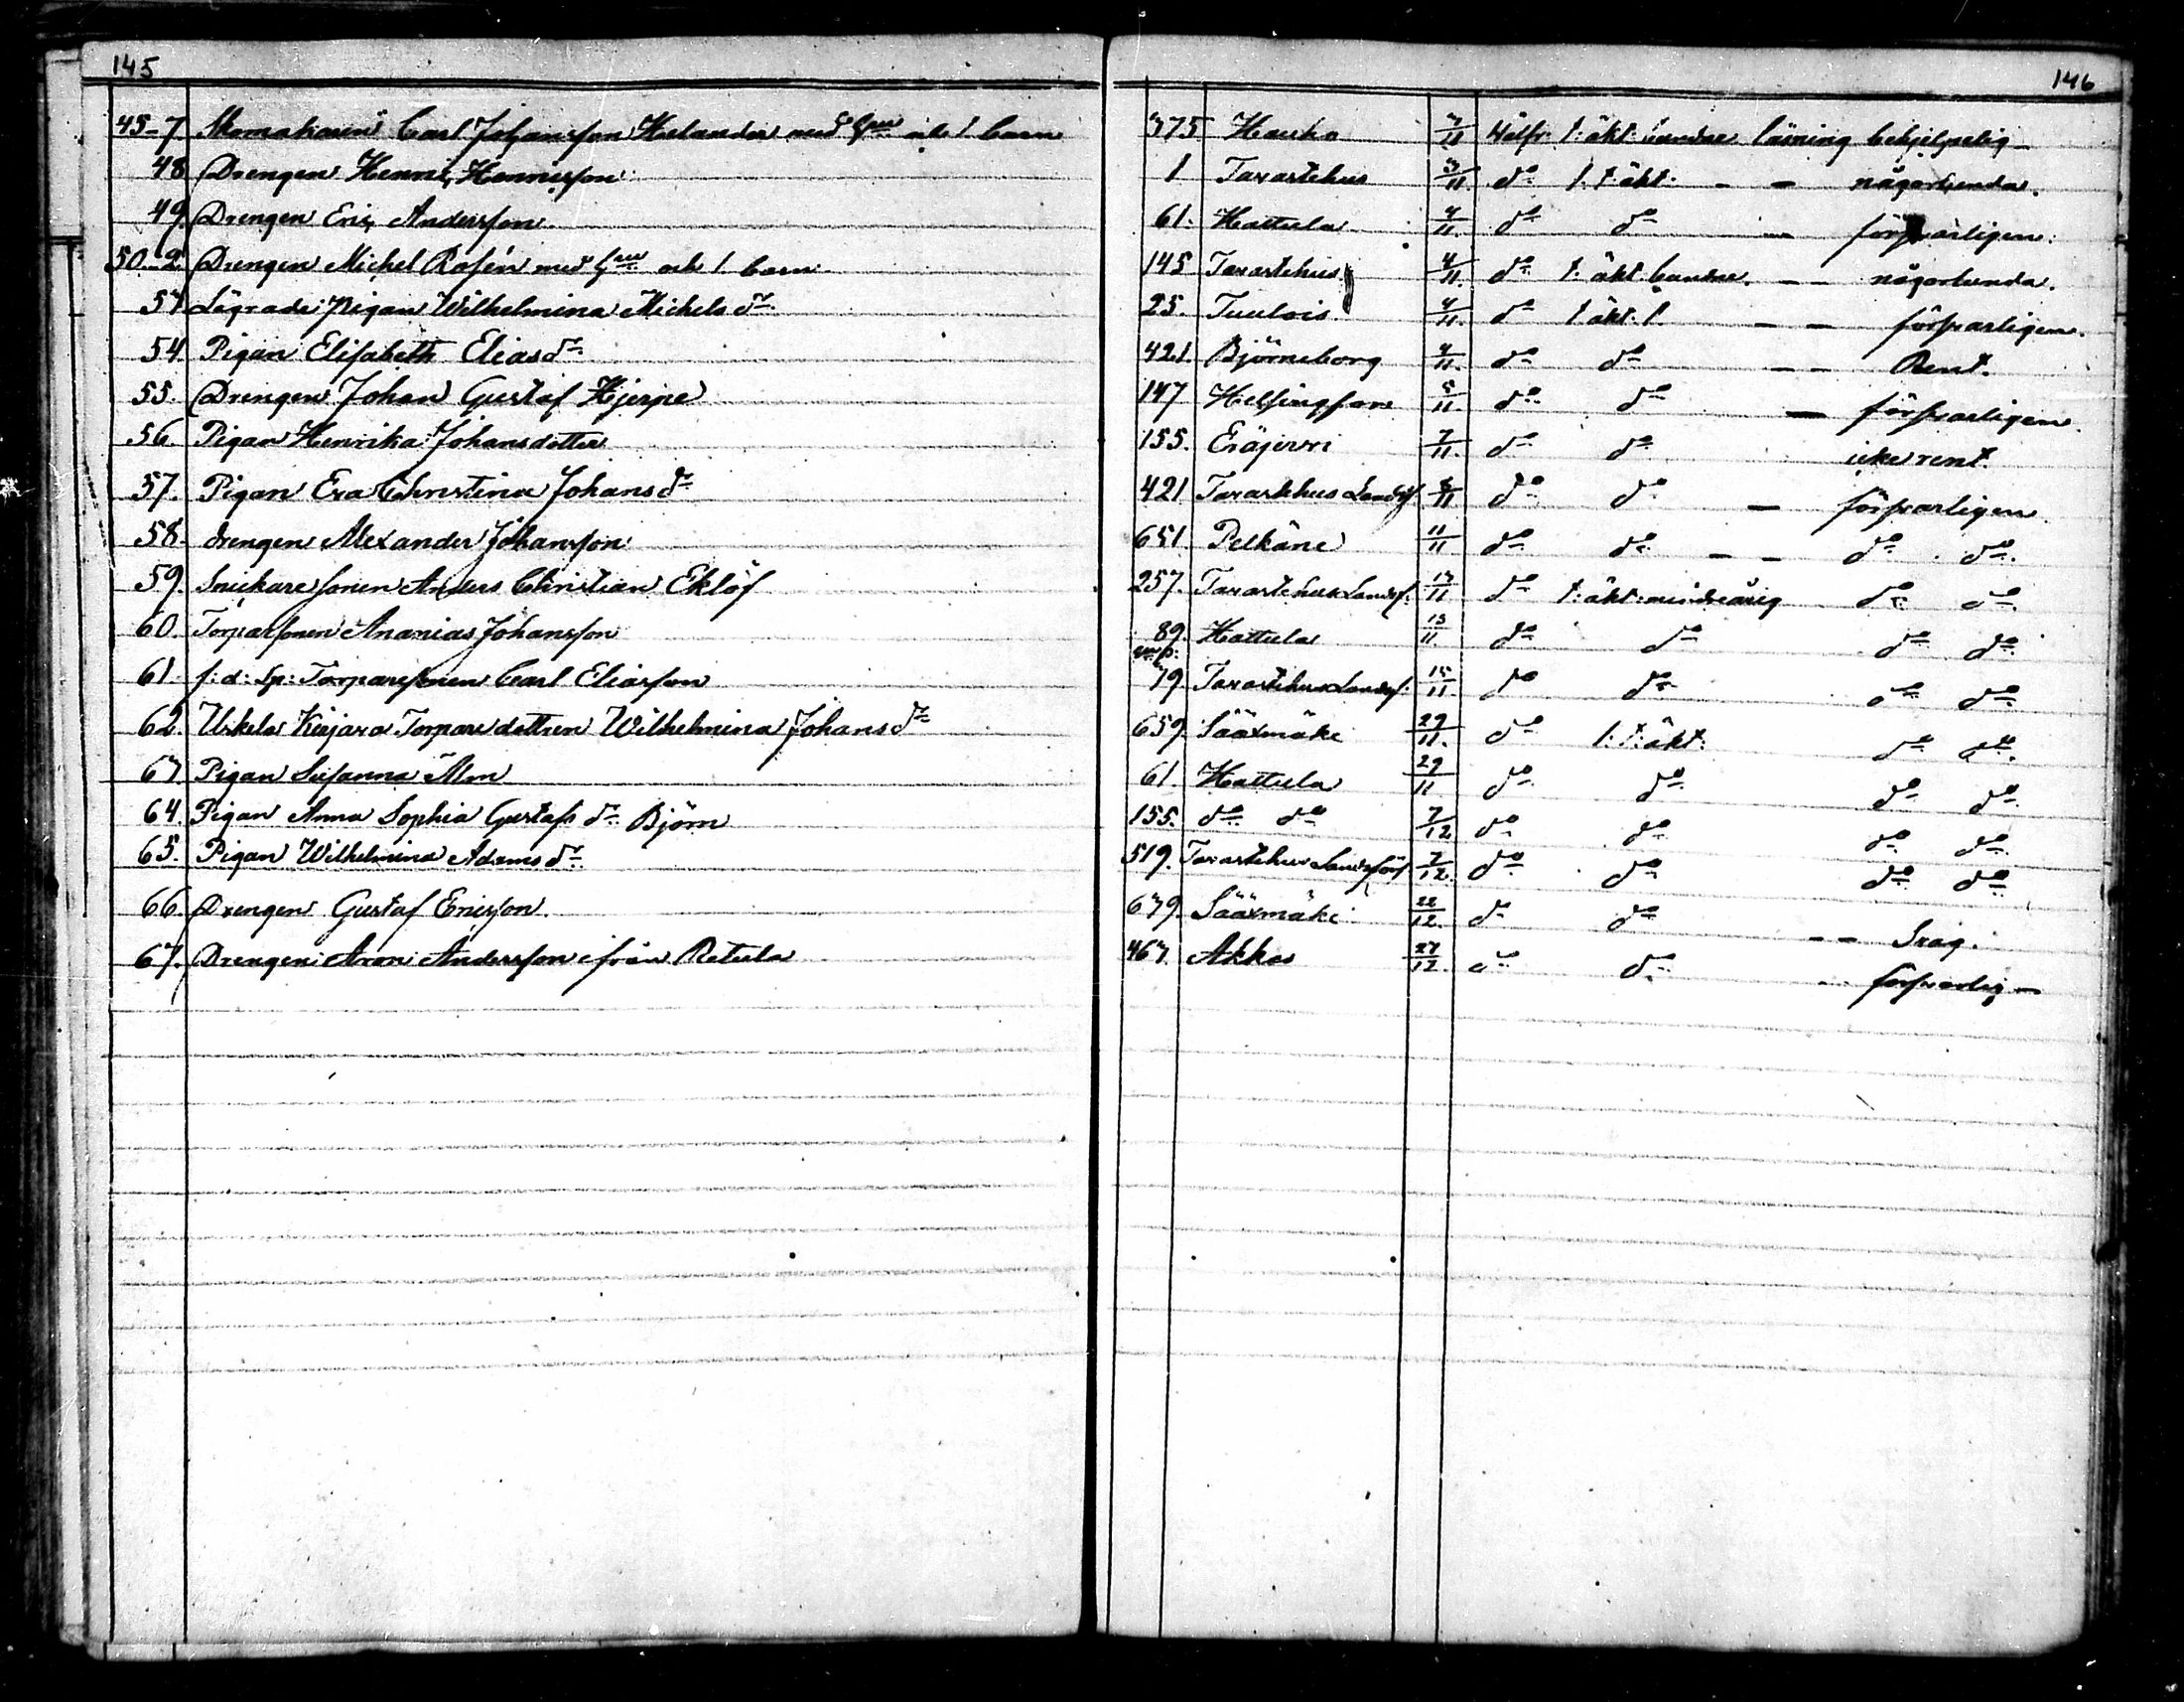 145
45-7. Skomakaren Carl Johansson Helander med Hu och 1 barn
48 Drengen Henric Henricsson
49. Drengen Eric Andersson
50-2 Drengen Michel Rosén med Hu och 1 barn
53 Lägrade Pigan Wilhelmina Michels dr
54. Pigan Elisabeth Elias dr
55. Drengen Johan Gustaf Hjerpe
56. Pigan Henrika Johansdotter
57. Pigan Eva Christina Johans dr
58. drengen Alexander Johansson
59. Snickaresonen Anders Christian Eklöf
60. Torparsonen Ananias Johansson
61. f:d: Sp: Torparesonen Carl Eliasson
62. Uskela Torpare dottren Wilhelmina Johans dr
63 Pigan Susanna Alm
64. Pigan Anna Sophia Gustafs dr Björn
65. Pigan Wilhelmina Adams dr
66. Drengen Gustaf Ericsson
67. Drengen Aron Andersson ifrån Retula
146
375 Hauho 3/11 1: äkt: bandne läsning behjelpelig
1 Tavastehus 3/11 do 1. t: äkt. - - någorlunda.
61. Hattula 4/11. do do - försvarligen.
145 Tavastehus 4/11. do t. äkt bandne. - - någorlunda.
25. Tuulois 4/11. do t äkt. 1. - - försvarligen.
421. Björneborg 4/11. do do - - Rent.
147 Helsingfors 5/11. do do - försvarligen
155. Eräjervi 7/11. do do icke rent.
421 Tavastehus Landsf. 8/11 do do - försvarligen
651. Pelkäne 11/11 do do - - do do
257. Tavastehus Landsf. 13/11 do t: äkt: minderårig do do
89. Hattula 13/11. do do do do
79 Tavastehus Landsf. 15/11 do do do do
659. Sääxmäke 29/11. do 1: t: äkt: do do
61. Hattula 29/11 do do do do
155. do do 7/12 do do do do
519. Tavastehus Landsförs 7/12. do do do do
679. Sääxmäki 22/12. do do - - Svag.
467 Akkas 27/12. do do - - försvarlig -